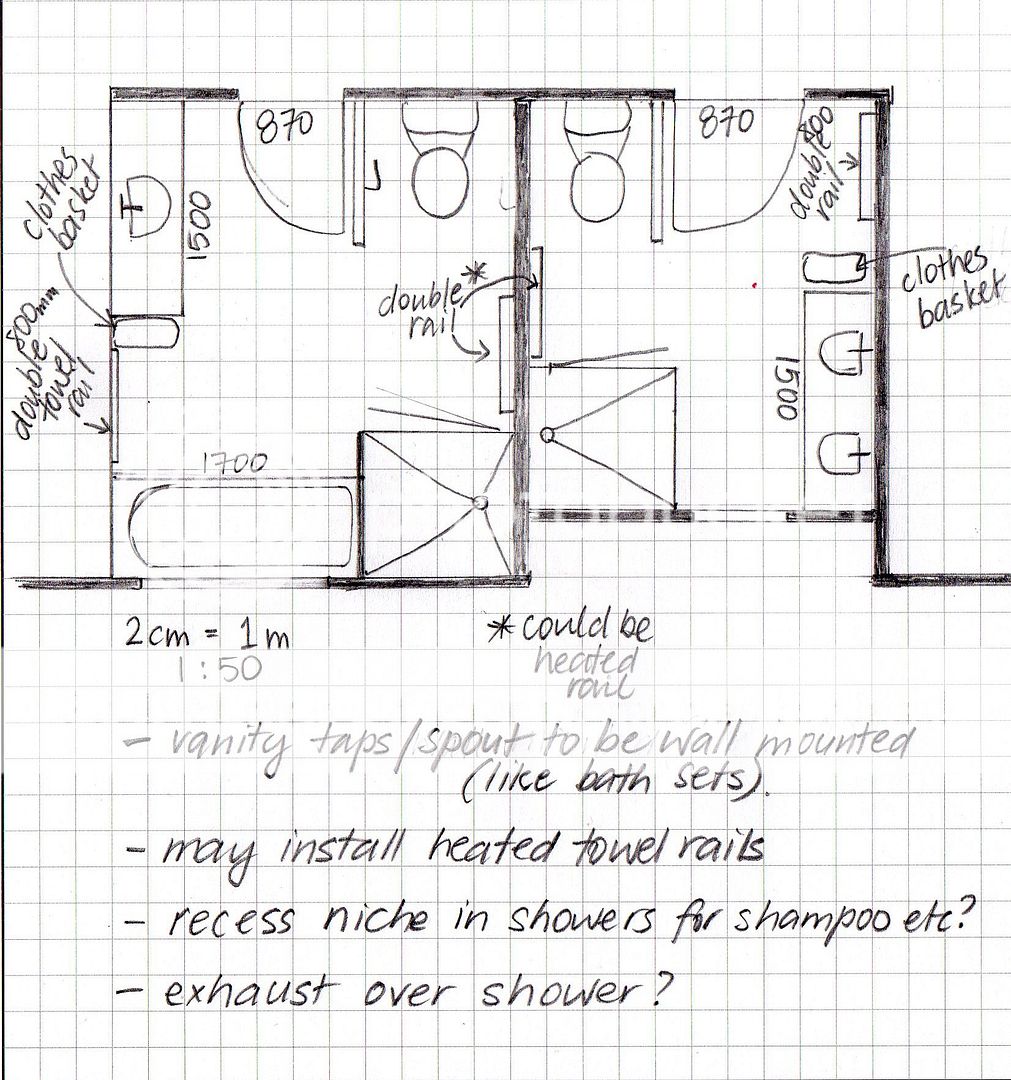 870
870
800
double
rail
clothes
basket
1500
double *
rail
clothes
basket
800mm
double
towel
rail
1500
1700
2cm = 1m
1:50
* could be
heated
rail
- vanity taps/spout to be wall mounted
(like bath sets).
- may install heated towel rails
- recess niche in showers for shampoo etc?
- exhaust over shower?